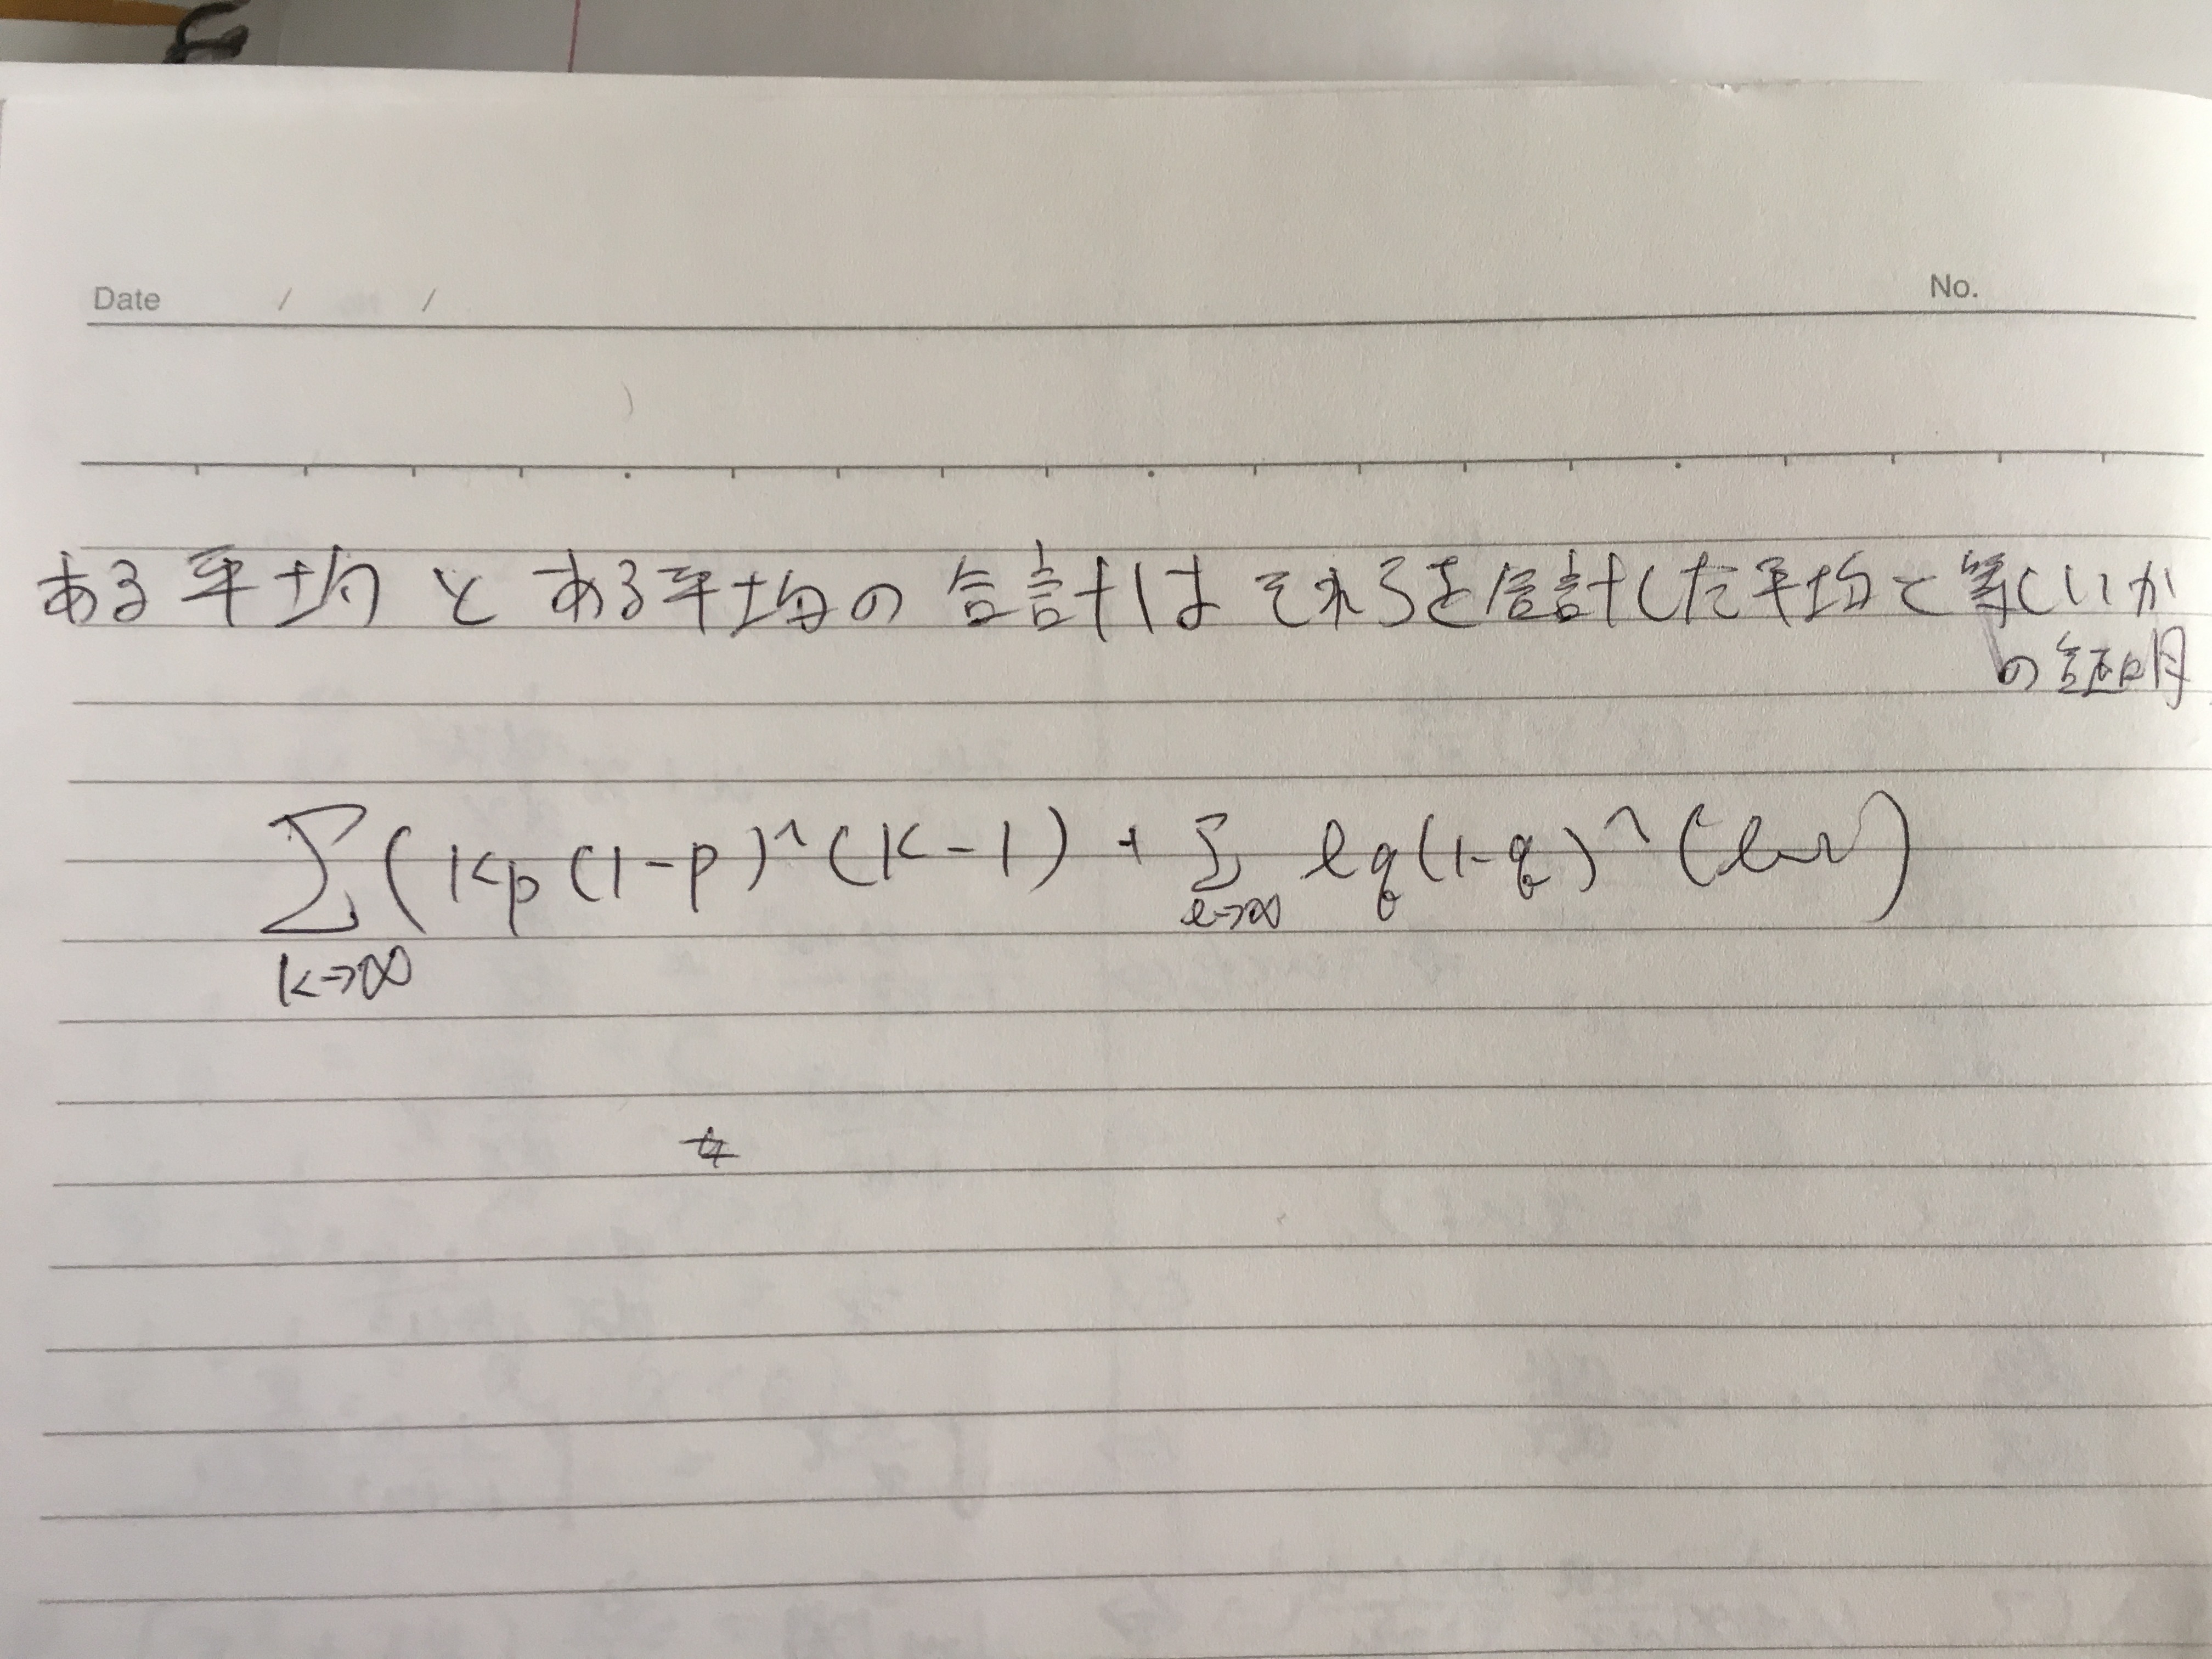 Date / / No.
ある平均とある平均の合計はそれらを合計した平均と等しいか
の証明
∑(kp(1-p)^(k-1) + ∑ lq(1-q)^( )
k→∞ l→∞